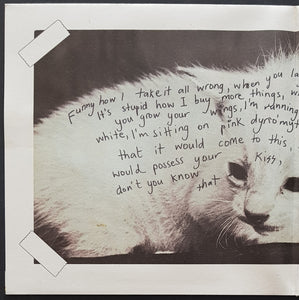 Funny how I take it all wrong, when you la
It's stupid how I buy more things, wi
you grow your wings, I'm running
white, I'm sitting on pink
that it would come to this,
would possess your kiss,
don't you know that